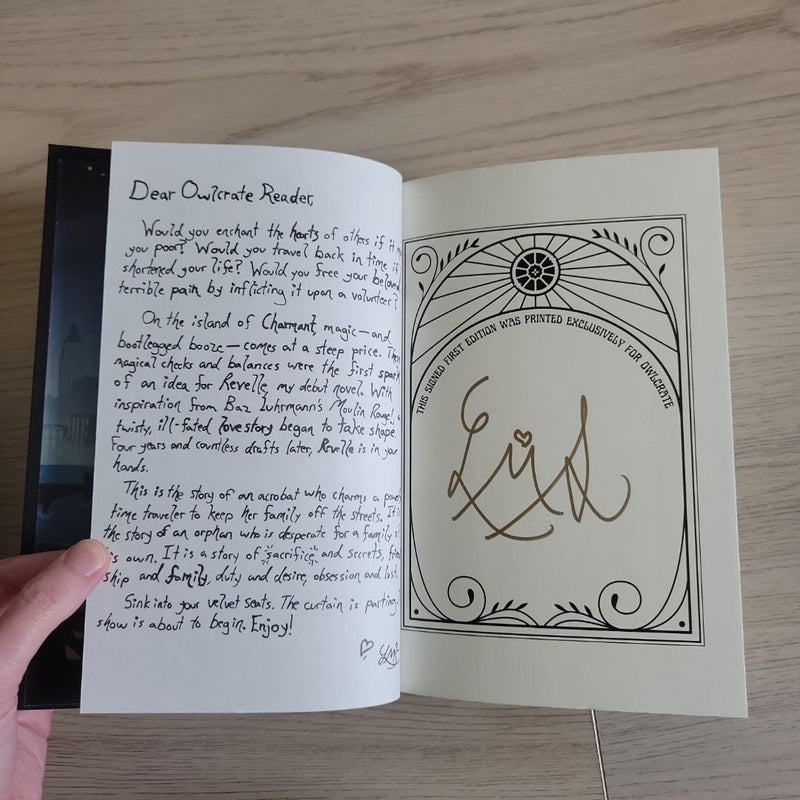 Dear Owlcrate Reader,
Would you enchant the hearts of others if it
you poor? Would you travel back in time if
shortened your life? Would you free your beloved
terrible pain by inflicting it upon a volunteer?
On the island of Charmant, magic—and
bootlegged booze—comes at a steep price. These
magical checks and balances were the first spark
of an idea for Revelle, my debut novel. With
inspiration from Baz Luhrmann's Moulin Rouge!, a
twisty, ill-fated love story began to take shape.
Four years and countless drafts later, Revelle is in your
hands.
This is the story of an acrobat who charms a
time traveler to keep her family off the streets. It is
the story of an orphan who is desperate for a family of
his own. It is a story of sacrifice and secrets,
ship and family, duty and desire, obsession and lust.
Sink into your velvet seats. The curtain is parting,
show is about to begin. Enjoy!
THIS SIGNED FIRST EDITION WAS PRINTED EXCLUSIVELY FOR OWLCRATE